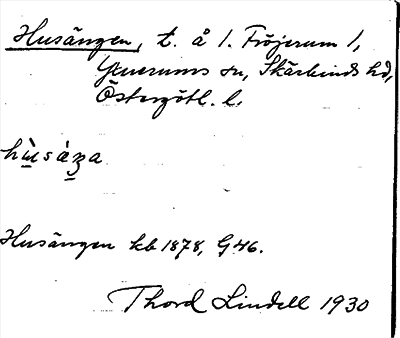 Husängen, t. å 1. Fröjerum 1,
Gnerums sn, Skärkinds hd,
Östergötl. l.
hùsáŋa
Husängen kb 1878, G46.
Thord Lindell 1930